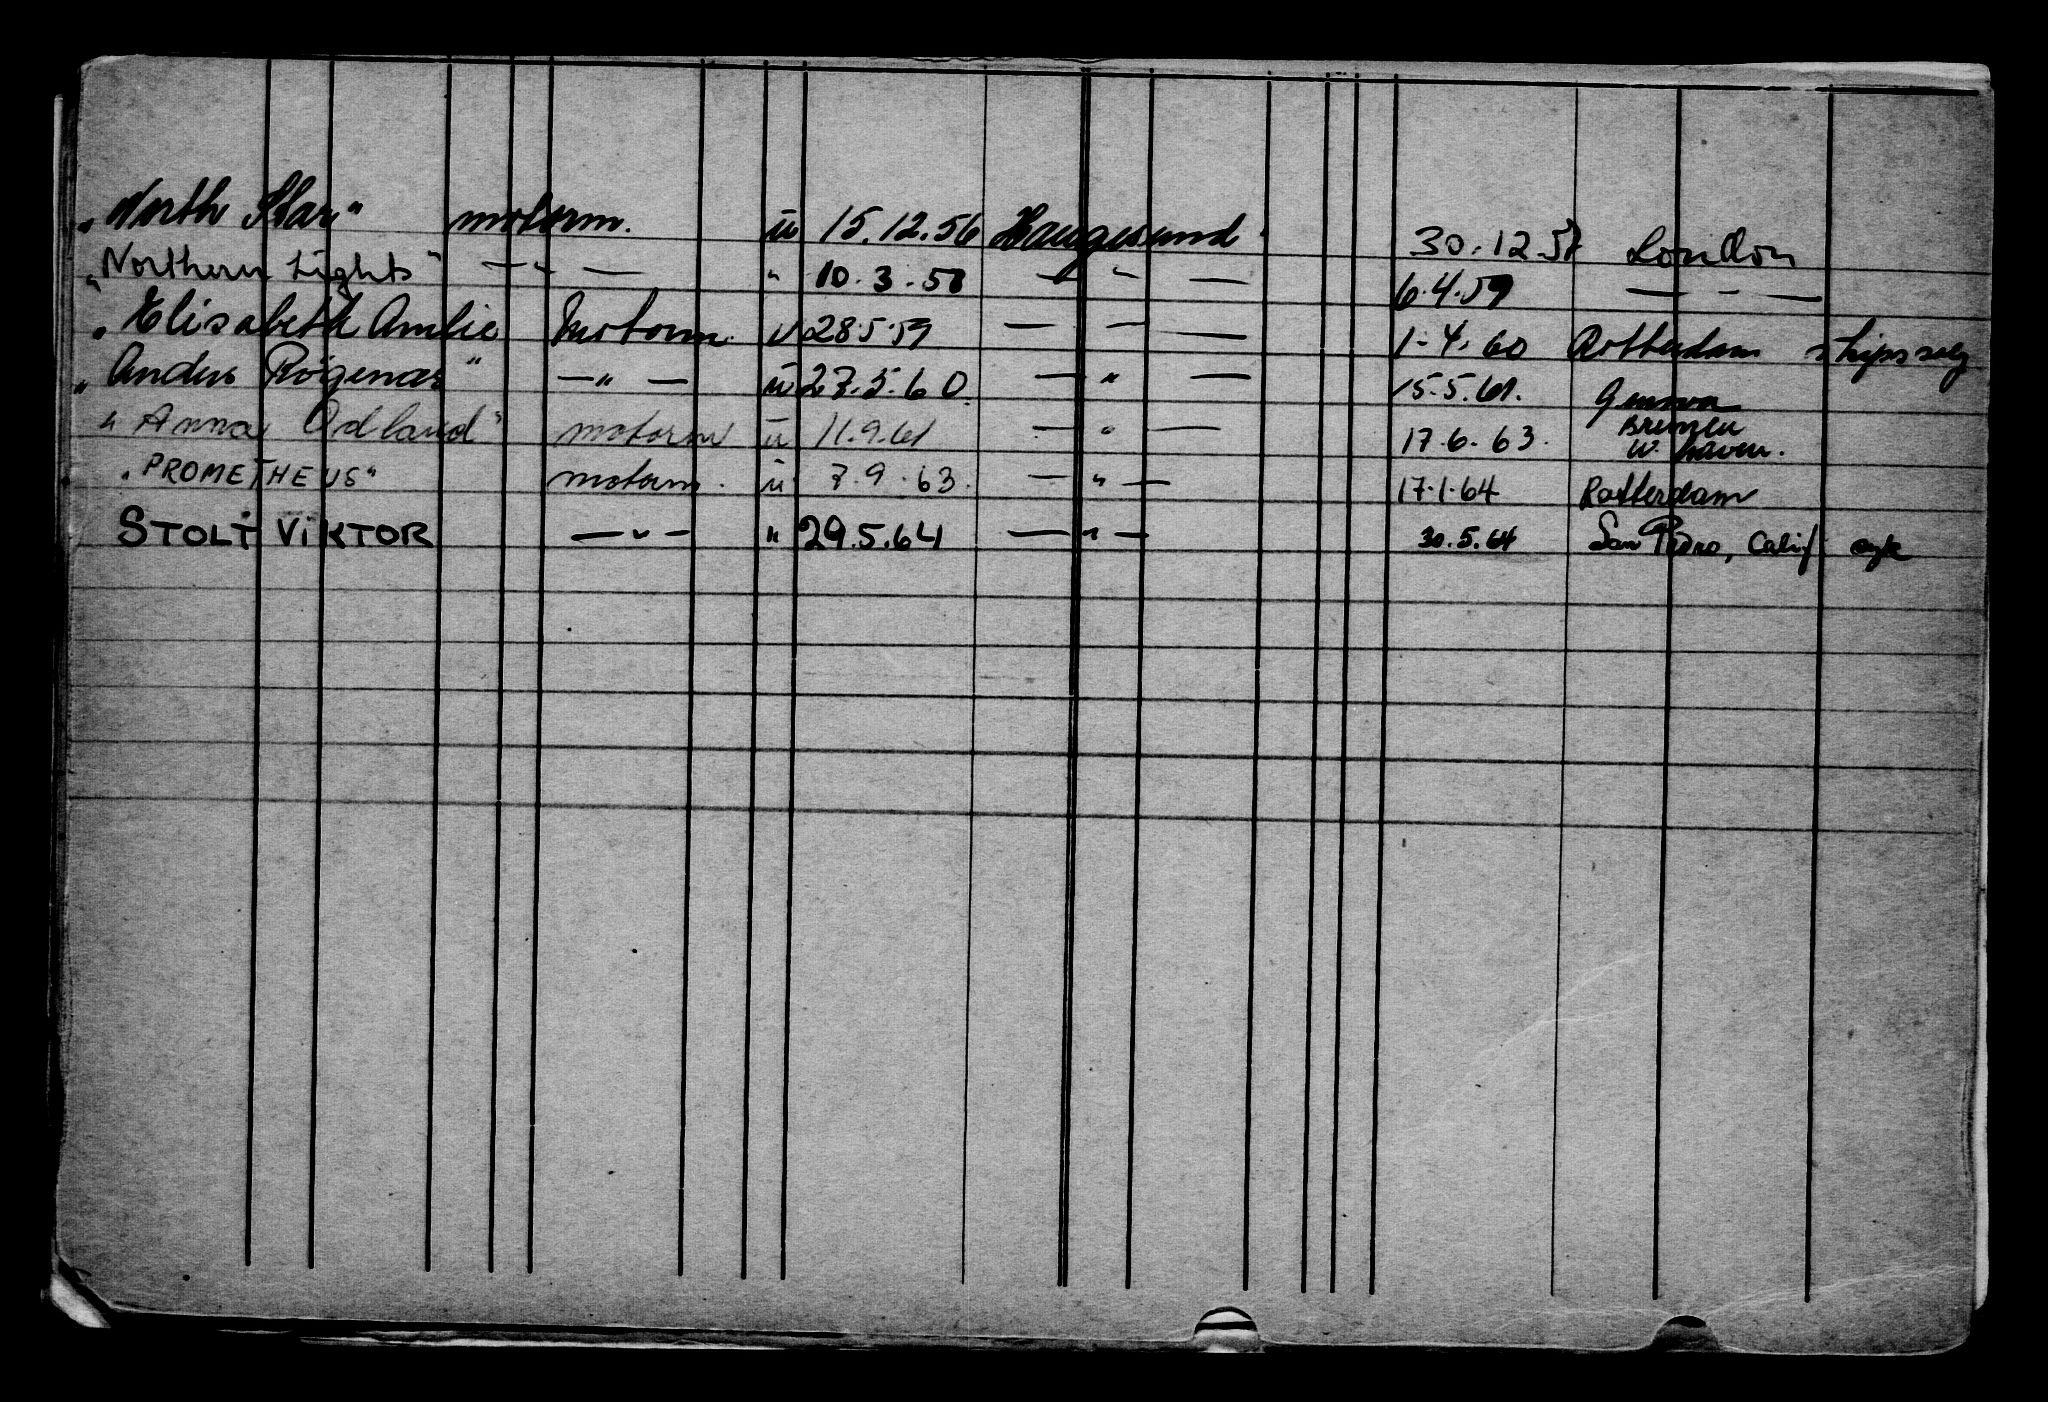 "North Star" motorm. ü 15.12.56 Haugesund. 30.12.57 London
"Northern Lights" — " — " 10.3.58 — " — 6.4.59 — " —
"Elisabeth Amlie Motorm. ü 28.5.59 — " — 1.4.60 Rotterdam skipssalg
"Anders Rögenæs" — " — ü 27.5.60. — " — 15.5.61. Genova
"Anna Odland" motorm ü 11.9.61 — " — 17.6.63. Bremen W. haven.
"PROMETHEUS" motorm. ü 7.9.63. — " — 17.1.64 Rotterdam
STOLT VIKTOR — " — " 29.5.64 — " — 30.5.64 San Pedro, Calif syk